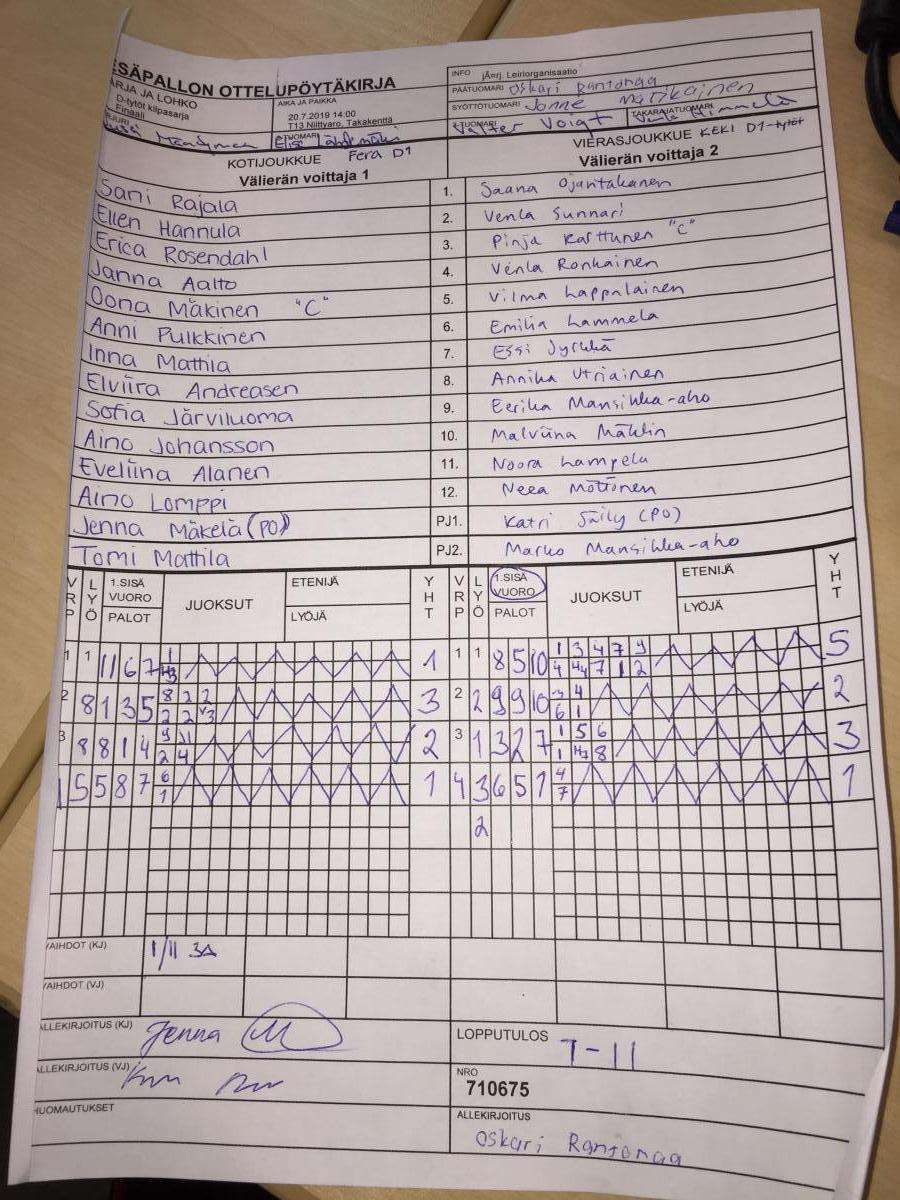 ESÄPALLON OTTELUPÖYTÄKIRJA
ARJA JA LOHKO
D-tytöt kilpasarja
Finaali
AIKA JA PAIKKA
20.7.2019 14:00
T13 Niittyaro, Takakenttä
INFO jÄnrj. Leiriorganisaatio
PÄÄTUOMARI Oskari Rantonaa
SYÖTTÖTUOMARI Jonne Matikainen
TUOMARI Valter Voigt TAKARAJATUOMARI
KOTIJOUKKUE Fera D1
Välierän voittaja 1
VIERASJOUKKUE KEKI D1-tytöt
Välierän voittaja 2
Sani Rajala 1. Saana Ojantakanen
Ellen Hannula 2. Venla Sunnari
Erica Rosendahl 3. Pinja Karttunen "C"
Janna Aalto 4. Venla Ronkainen
Oona Mäkinen "C" 5. Vilma Lappalainen
Anni Pulkkinen 6. Emilia Lammela
Inna Mattila 7. Essi Jyrkkä
Elviira Andreasen 8. Annika Utriainen
Sofia Järviluoma 9. Eerika Mansikka-aho
Aino Johansson 10. Malviina Mählin
Eveliina Alanen 11. Noora Lampela
Aino Lomppi 12. Neea Möttönen
Jenna Mäkelä (PO) PJ1. Katri Säily (PO)
Tomi Mattila PJ2. Marko Mansikka-aho
VRP LYÖ 1.SISÄ VUORO PALOT JUOKSUT ETENIJÄ LYÖJÄ YHT VRP LYÖ 1.SISÄ VUORO PALOT JUOKSUT ETENIJÄ LYÖJÄ YHT
1 1 11 6 7 1 1 1 8 5 10 1 3 4 7 9 5
2 8 1 3 5 8 2 2 3 2 2 9 9 10 3 4 2
2 2 V3 6 1
3 8 8 1 4 9 11 2 3 1 3 2 7 1 5 6 3
2 4 1 H3 8
1 5 5 8 7 6 1 4 3 6 5 1 4 1
1 7
2
VAIHDOT (KJ) I/II 3A
VAIHDOT (VJ)
ALLEKIRJOITUS (KJ) Jenna M
LOPPUTULOS 7-11
ALLEKIRJOITUS (VJ)
NRO
710675
HUOMAUTUKSET
ALLEKIRJOITUS
Oskari Rantonaa